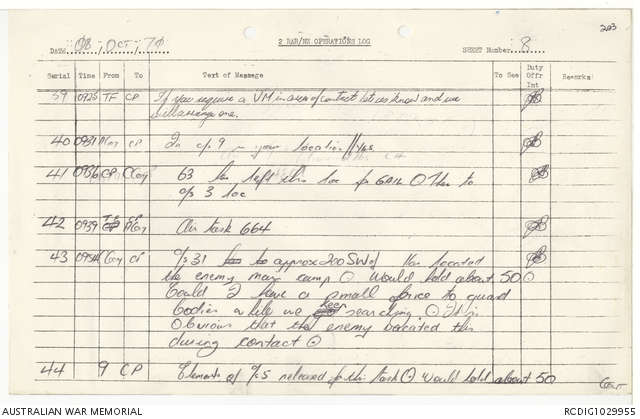 203
DATE 08 / OCT / 70 2 RAR/NZ OPERATIONS LOG SHEET Number 8
Serial Time From To Text of Message To See Duty Offr Int Remarks
39 0925 TF CP If you require a VM in area of contact let us know and we
will arrange one.
40 0931 Coy CP Is c/s 9 in your location // Yes
41 0936 CP C Coy 63 has left this loc for GAIL O Then to
c/s 3 loc
42 0939 Air task 664
43 Coy CP c/s 31 to approx 200 SW of Has located
the enemy main camp O Would hold about 50 O
Could I have a small force to guard
bodies while we keep searching O It is
Obvious that the enemy vacated this
during contact O
44 9 CP Elements of c/s released for this task O Would hold about 50
Cont
AUSTRALIAN WAR MEMORIAL RCDIG1029955